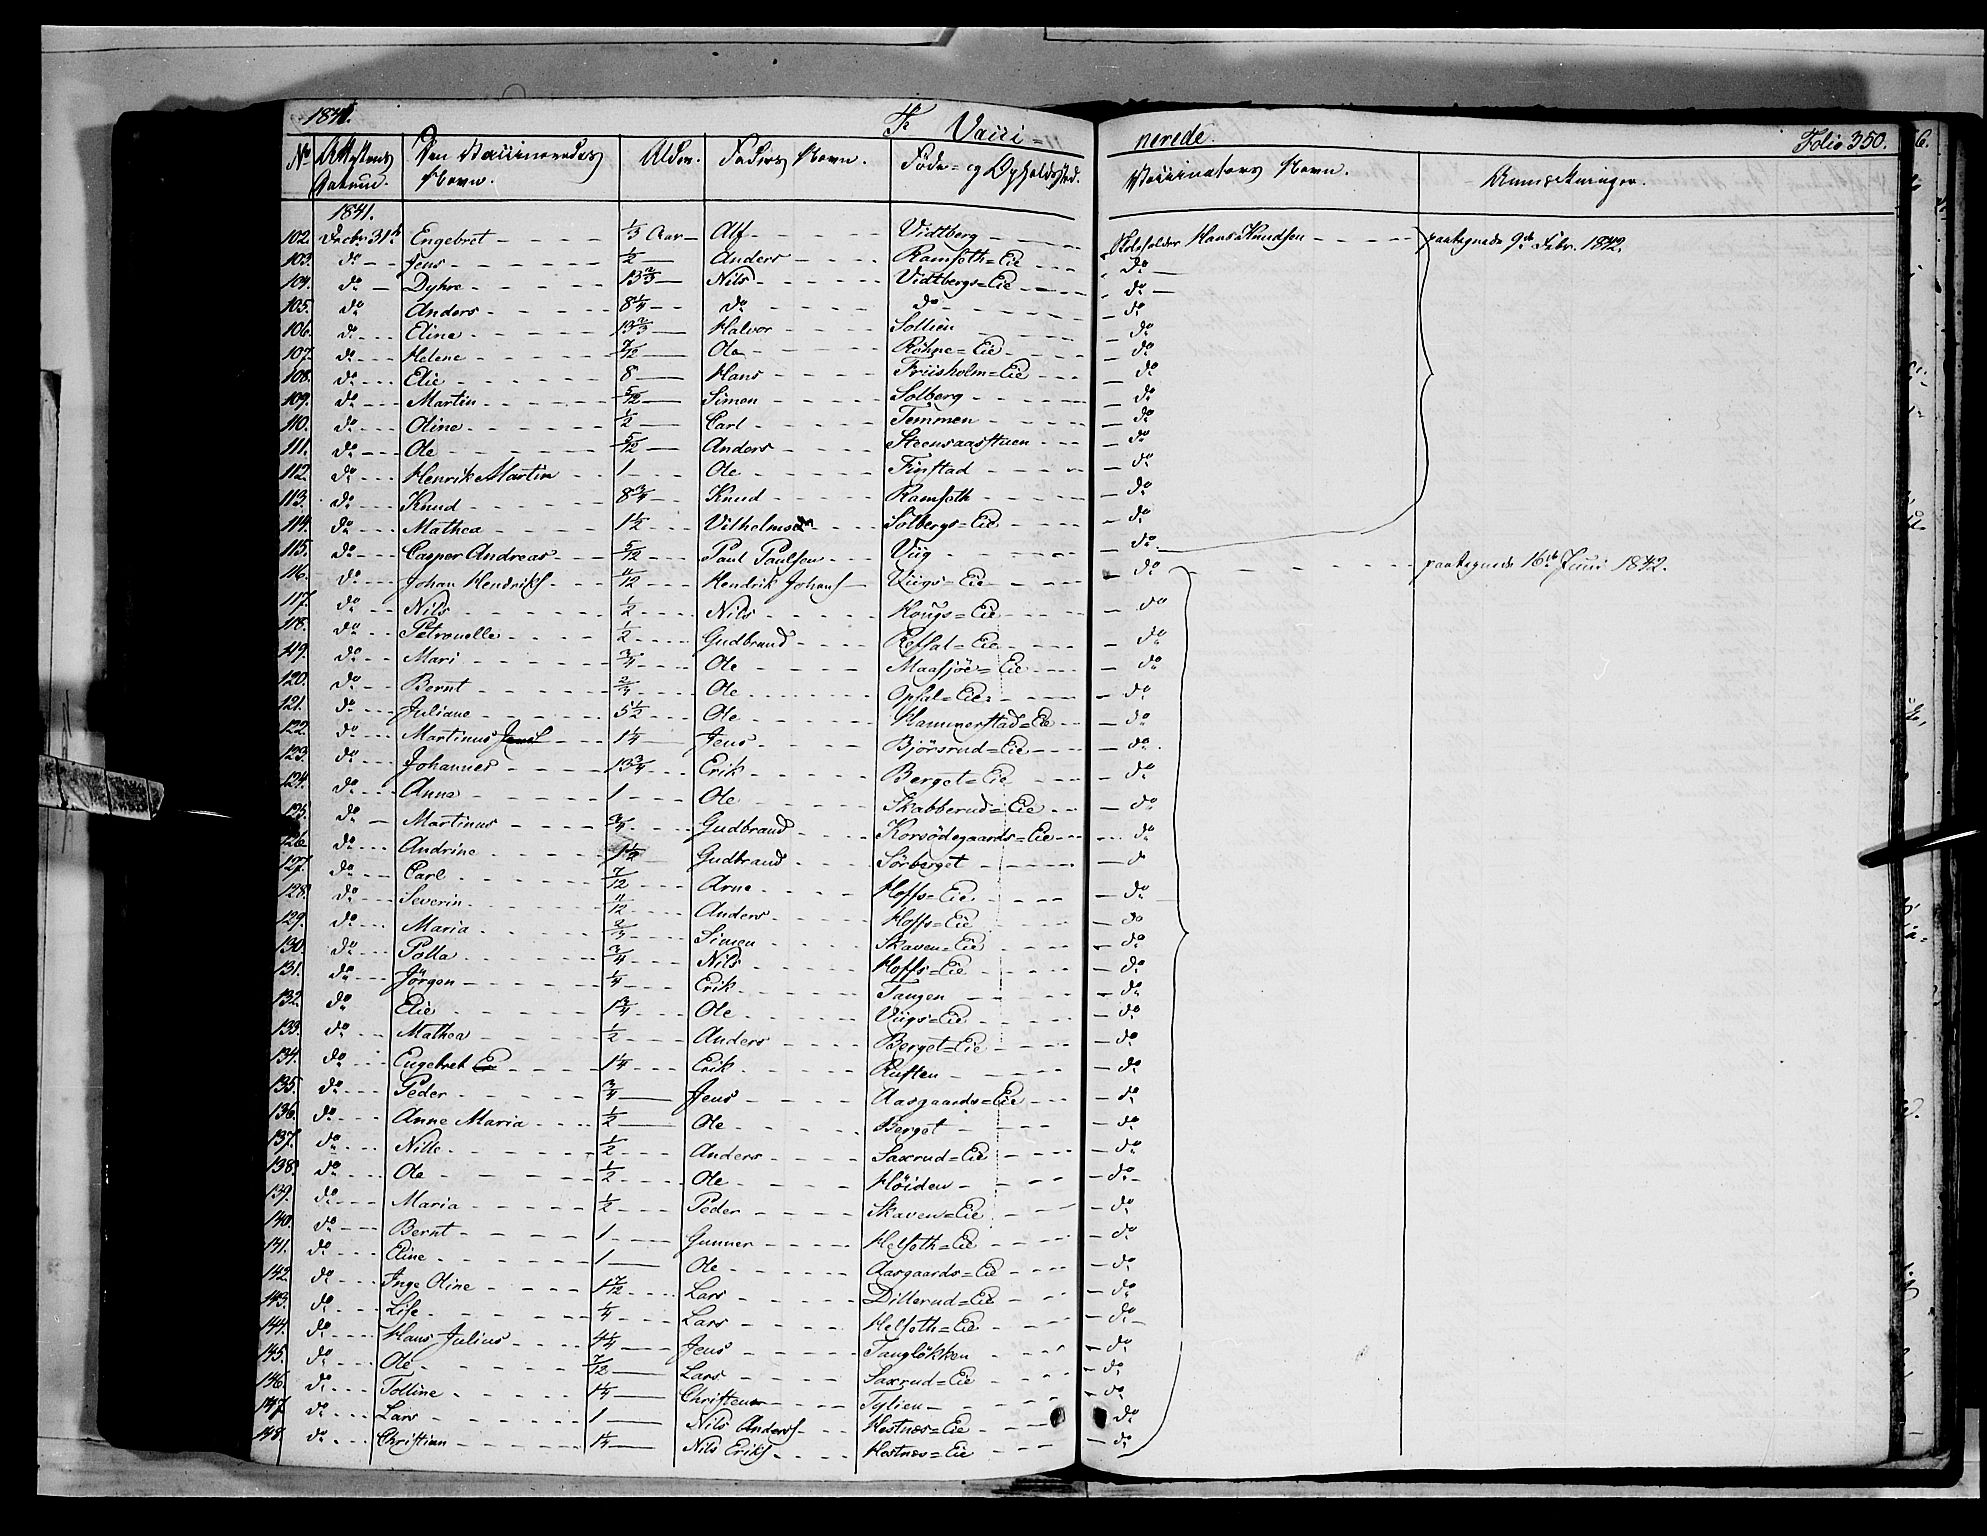 1841. Vacci=nerede. Folio 350.
No Attestens Datum. Den Vaccineredes Navn. Alder. Faders Navn. Föde= og Opholdssted. Vaccinators Navn. Anmærkninger.
1841.
102. Decbr 31te Engebret 1/3 Aar Alf Vidtberg Hans Knudsen paategnede 9de Febr. 1842.
103. do Jens 1/2 Anders Ramsoth=Eie do
104. do Dyhre 13 2/3 Nils Vidtbergs=Eie do
105. do Anders 8 1/4 do do do
106. do Eline 13 2/3 Halvor Sollien do
107. do Helene 7/12 Ole Röhne=Eie do
108. do Elie 8 Hans Friisholm=Eie do
109. do Martin 5/12 Simen Solberg do
110. do Oline 1/2 Carl Temmen do
111. do Ole 5/12 Anders Steensaasstuen do
112. do Henrik Martin 1 Ole Finstad do
113. do Knud 8 3/4 Knud Ramsoth do
114. do Mathea 1 1/2 Vilhelm Solbergs=Eie do
115. do Casper Andreas 5/12 Paul Paulsen Viig do
116. do Johan Hendriks 11/12 Hendrik Johans Viigs=Eie do paategnede 16de Juni 1842.
117. do Nils 1/2 Nils Hougs=Eie do
118. do Petronelle 1/2 Gudbrand Refsal=Eie do
119. do Mari 3/4 Ole Maasjöe=Eie do
120. do Bernt 2/4 Ole Opsal=Eie do
121. do Juliane 5 1/2 Ole Hammerstad=Eie do
122. do Martinus 1 1/4 Jens Bjórsrud=Eie do
123. do Johannes 13 3/4 Erik Berget=Eie do
124. do Anne 1 Ole Skabberud=Eie do
125. do Martinus 3/4 Gudbrand Korsödegaards=Eie do
126. do Andrine 1 1/2 Gudbrand Sörberget do
127. do Carl 7/12 Arne Hoffs=Eie do
128. do Severin 11/12 Anders Hoffs=Eie do
129. do Maria 2/4 Simen Skaven=Eie do
130. do Polla 3/4 Nils Hoffs=Eie do
131. do Jörgen 1/4 Erik Tangen do
132. do Elie 1 3/4 Ole Viigs=Eie do
133. do Mathea 1/2 Anders Berget=Eie do
134. do Engebret 1 1/4 Erik Rusten do
135. do Peder 3/4 Jens Aasgaards=Eie do
136. do Anne Maria 1/2 Ole Berget do
137. do Nille 1/2 Anders Saxrud=Eie do
138. do Ole 1/2 Ole Höiden do
139. do Maria 1/2 Peder Skaven=Eie do
140. do Bernt 1 Gunner Helsoth=Eie do
141. do Eline 1 Ole Aasgaards=Eie do
142. do Inge Oline 1 7/12 Lars Dillerud=Eie do
143. do Lise 1/4 Lars Helsoth=Eie do
144. do Hans Julius 4 1/4 Jens Tanglökken do
145. do Ole 7/12 Lars Saxrud=Eie do
146. do Tolline 1 1/4 Christen Tylien do
147. do Lars 1 Nils Anders Hestnæs=Eie do
148. do Christian 1 1/4 Nils Eriks Hestnæs=Eie do